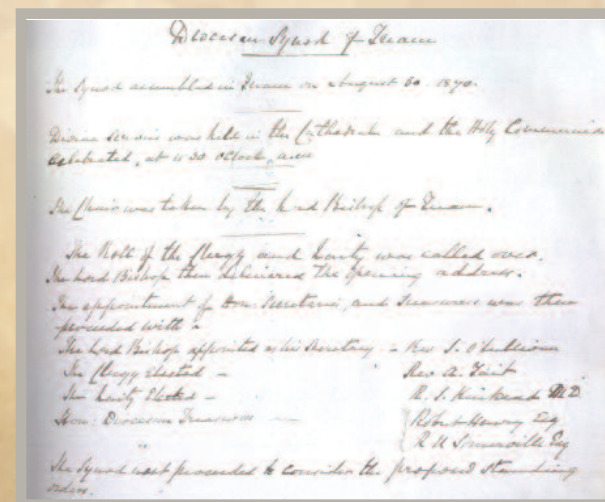 Diocesan Synod of Tuam
The Synod assembled in Tuam on August 30. 1870.
Divine service was held in the Cathedral and the Holy Communion
celebrated, at 11 30 oclock, a.m
The Chair was taken by the Lord Bishop of Tuam.
The Roll of the Clergy and Laity was called over.
The Lord Bishop then delivered the opening address.
The appointment of Hon: Secretaries, and Treasurers was then
proceeded with -
The Lord Bishop appointed as his Secretary - Rev J. O'Sullivan
The Clergy Elected - Rev A.
The Laity Elected - R. S. Kinkead M.D.
Hon: Diocesan Treasurers - Robert Henry Esq
" R U Somerville Esq
The Synod next proceeded to consider the proposed standing
orders.